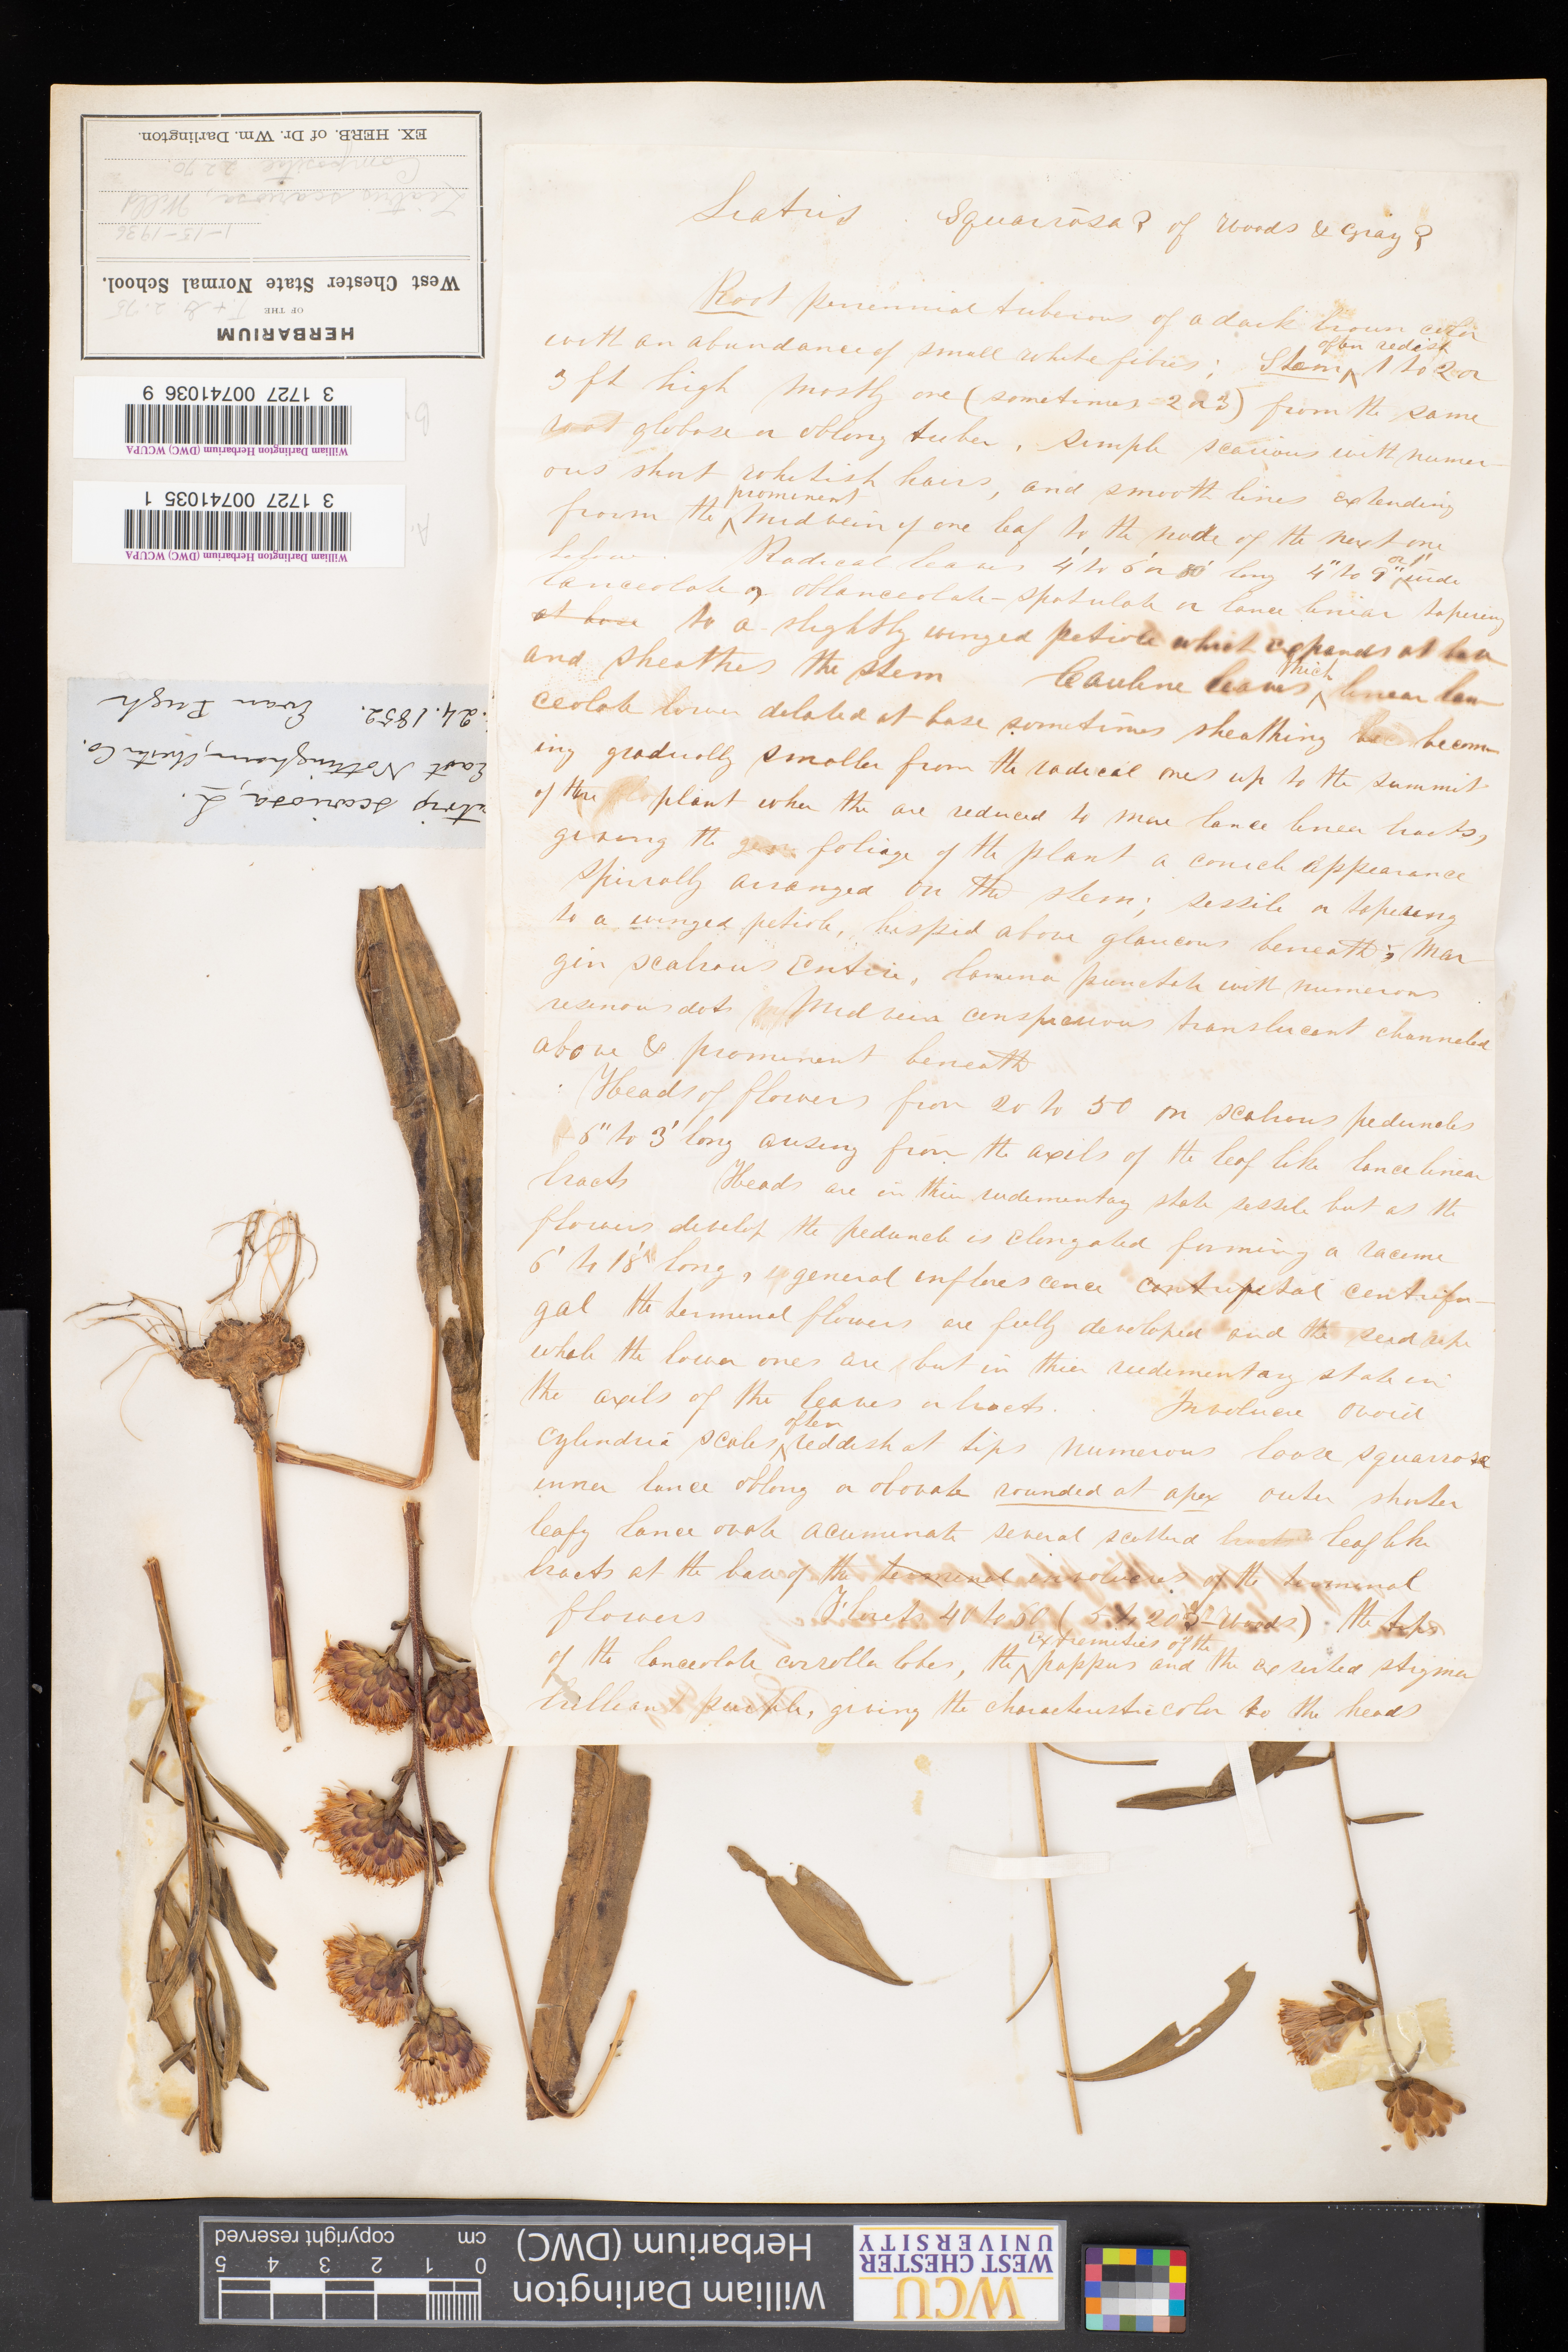 Liatris Squarrosa? of Woods & Gray?
Root perrennial tuberous of a dark brown color
with an abundance of small white fibres; Stem often redish 1 to 2 or
3 ft high mostly one (sometimes 2 or 3) from the same
root globose or oblong tuber, simple scarious with numer-
ous short whitish hairs, and smooth lines extending
from the prominent midvein of one leaf to the node of the next one
below. Radical leaves 4' to 6' or long 4" to 9" or 1' wide
lanceolate or oblanceolate-spatulate or lance linear tapering
at base to a slightly winged petiole which expands at base
and sheathes the stem Cauline leaves thick linear lan-
ceolate lower delated at base sometimes sheathing becom-
ing gradually smaller from the radical ones up to the summit
of the plant wher the are reduced to mere lance linear bracts,
giving the foliage of the plant a conick appearance
spirrally arranged on the stem; sessile or tapering
to a winged petiole, hispid above glaucous beneath; Mar
gin scabrous Entire, lamina punctate with numerous
resinous dots Midvein conspicuous translucent channeled
above & prominent beneath
Heads of flowers from 20 to 50 on scabrous peduncles
6" to 3' long arising from the axils of the leaf like lance linear
bracts Heads are in thier rudementary state sessile but as the
flowers develop the peduncle is elongated forming a raceme
6' to 18' long, general inflorescence centripetal centrifu-
gal the terminal flowers are fully developed and the seed ripe
while the lower ones are but in thier rudementary state in
the axils of the leaves or bracts. Involucre ovoid
cylindric scales often reddish at tips numerous loose squarrose
inner lance oblong or obovate rounded at apex outer shorter
leafy lance ovate acuminate several scatterd leaf like
bracts at the base of the terminal involucres of the terminal
flowers Florets 40 to 50 (5 to 20 Woods) the tips
of the lanceolate corrolla lobes, the extremeties of the pappus and the exserted stigma
brilliant purple, giving the characteristic color to the heads
HERBARIUM
OF THE
T. & G. 2.75
West Chester State Normal School.
1-15-1936
Liatris scariosa, Willd
Compositae 2270.
EX. HERB. of Dr. Wm. Darlington.
B.
William Darlington Herbarium (DWC) WCUPA
3 1727 00741036 9
A.
William Darlington Herbarium (DWC) WCUPA
3 1727 00741035 1
atris scariosa, L.
East Nottingham, Chester Co.
24. 1852. Evan Pugh
WCU
WEST CHESTER
UNIVERSITY
William Darlington
Herbarium (DWC)
0 1 2 3 4 5
cm copyright reserved